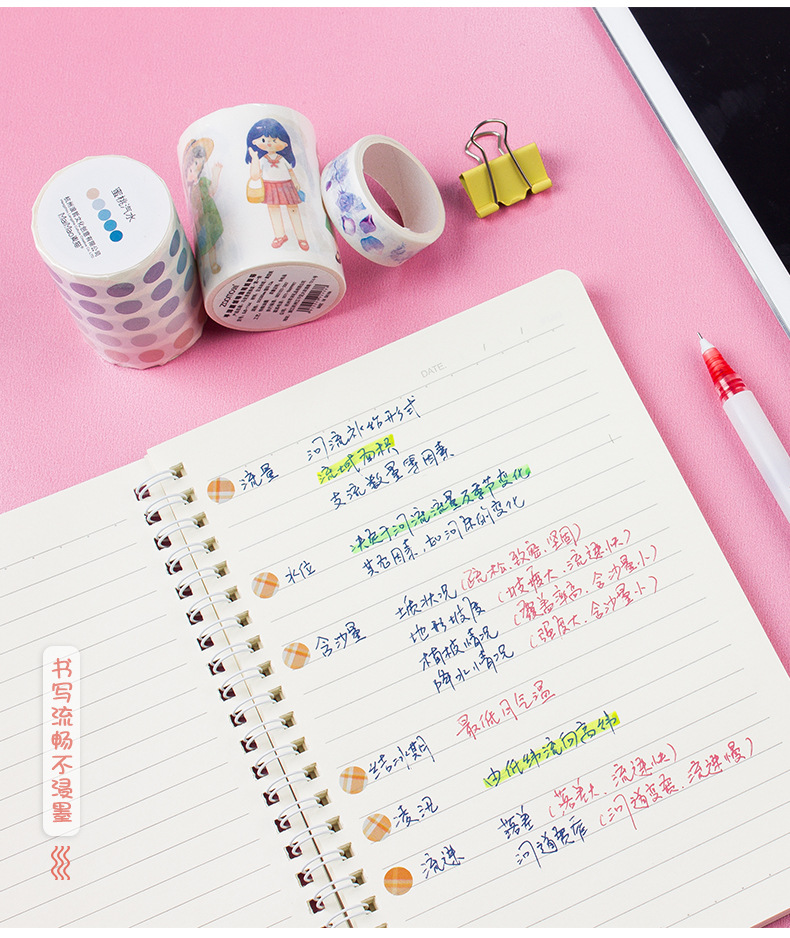 蜜桃汽水
MaiMao麦猫
DATE.
河流补给形式
流量
流域面积
支流数量等因素
水位
决于河流流量及季节变化
其它因素,如河床的变化
含沙量
土壤状况(疏松,致密,坚固)
地形坡度(坡度大,流速快)
植被情况(覆盖率高,含沙量小)
降水情况(强度大,含沙量小)
结冰期
最低月气温
凌汛
由低纬流向高纬
流速
落差(落差大,流速快)
河道宽窄(河道变宽,流速慢)
书写流畅不浸墨